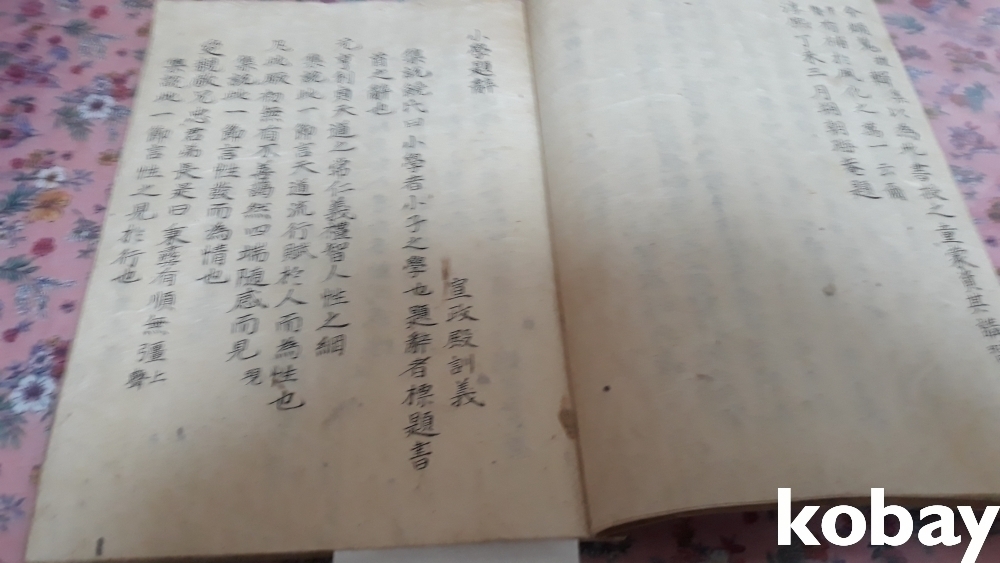 今頗蒐輯以為此書授之童蒙資其講
有補於風化之萬一云爾
淳熙丁未三月朔朝晦菴題
小學題辭
宣政殿訓義
集說饒氏曰小學者小子之學也題辭者標題書
首之辭也
元亨利貞天道之常仁義禮智人性之綱
集說此一節言天道流行賦於人而為性也
凡此厥初無有不善藹然四端隨感而見 現
集說此一節言性發而為情也
愛親敬兄忠君弟長是曰秉彝有順無彊 上聲
集說此一節言性之見於行也
kobay